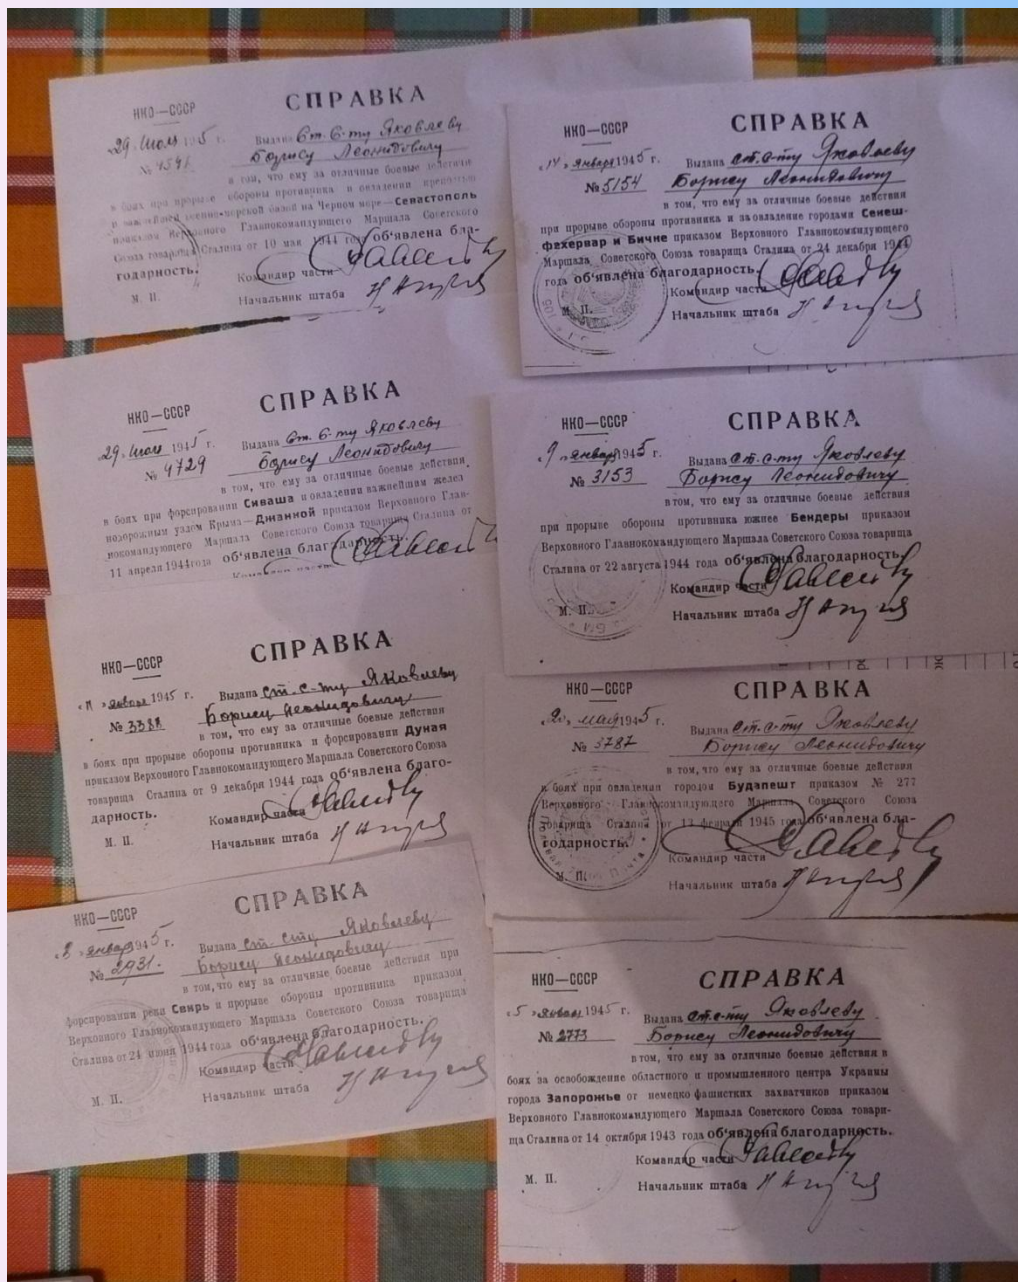 НКО—СССР
СПРАВКА
29 Июля 1945 г.
Выдана Ст. С-ту Яковлеву
№ 4596
Борису Леонидовичу
в том, что ему за отличные боевые действия
в боях при прорыве обороны противника и овладении крепостью
и важнейшей военно-морской базой на Черном море—Севастополь
приказом Верховного Главнокомандующего Маршала Советского
Союза товарища Сталина от 10 мая 1944 года об'явлена бла-
годарность.
Командир части
М. П.
Начальник штаба
НКО—СССР
СПРАВКА
29 Июля 1945 г.
Выдана Ст. С-ту Яковлеву
№ 4729
Борису Леонидовичу
в том, что ему за отличные боевые действия
в боях при форсировании Сиваша и овладении важнейшим желез
нодорожным узлом Крыма—Джанкой приказом Верховного Глав-
нокомандующего Маршала Советского Союза товарища Сталина от
11 апреля 1944 года об'явлена благодарность.
Командир части
НКО—СССР
СПРАВКА
«11» января 1945 г.
Выдана ст. с-ту Яковлеву
№ 3388
Борису Леонидовичу
в том, что ему за отличные боевые действия
в боях при прорыве обороны противника и форсировании Дуная
приказом Верховного Главнокомандующего Маршала Советского Союза
товарища Сталина от 9 декабря 1944 года об'явлена благо-
дарность.
Командир части
М. П.
Начальник штаба
НКО—СССР
СПРАВКА
января 1945 г.
Выдана ст. с-ту Яковлеву
№ 2931
Борису Леонидовичу
в том, что ему за отличные боевые действия при
форсировании реки Свирь и прорыве обороны противника приказом
Верховного Главнокомандующего Маршала Советского Союза товарища
Сталина от 24 июня 1944 года об'явлена благодарность.
Командир части
М. П.
Начальник штаба
НКО—СССР
СПРАВКА
«14» января 1945 г.
Выдана ст. с-ту Яковлеву
№ 5154
Борису Леонидовичу
в том, что ему за отличные боевые действия
при прорыве обороны противника и за овладение городами Секеш-
фехервар и Бичке приказом Верховного Главнокомандующего
Маршала Советского Союза товарища Сталина от 24 декабря 1944
года об'явлена благодарность.
Командир части
М. П.
Начальник штаба
НКО—СССР
СПРАВКА
«9» января 1945 г.
Выдана ст. с-ту Яковлеву
№ 3153
Борису Леонидовичу
в том, что ему за отличные боевые действия
при прорыве обороны противника южнее Бендеры приказом
Верховного Главнокомандующего Маршала Советского Союза товарища
Сталина от 22 августа 1944 года об'явлена благодарность.
Командир части
М. П.
Начальник штаба
НКО—СССР
СПРАВКА
мая 1945 г.
Выдана ст. с-ту Яковлеву
№ 3787
Борису Леонидовичу
в том, что ему за отличные боевые действия
в боях при овладении городом Будапешт приказом № 277
Верховного Главнокомандующего Маршала Советского Союза
товарища Сталина от 13 февраля 1945 года об'явлена бла-
годарность.
Командир части
М. П.
Начальник штаба
НКО—СССР
СПРАВКА
«5» января 1945 г.
Выдана ст. с-ту Яковлеву
№ 2773
Борису Леонидовичу
в том, что ему за отличные боевые действия в
боях за освобождение областного и промышленного центра Украины
города Запорожье от немецко фашистких захватчиков приказом
Верховного Главнокомандующего Маршала Советского Союза товари-
ща Сталина от 14 октября 1943 года об'явлена благодарность.
Командир части
М. П.
Начальник штаба